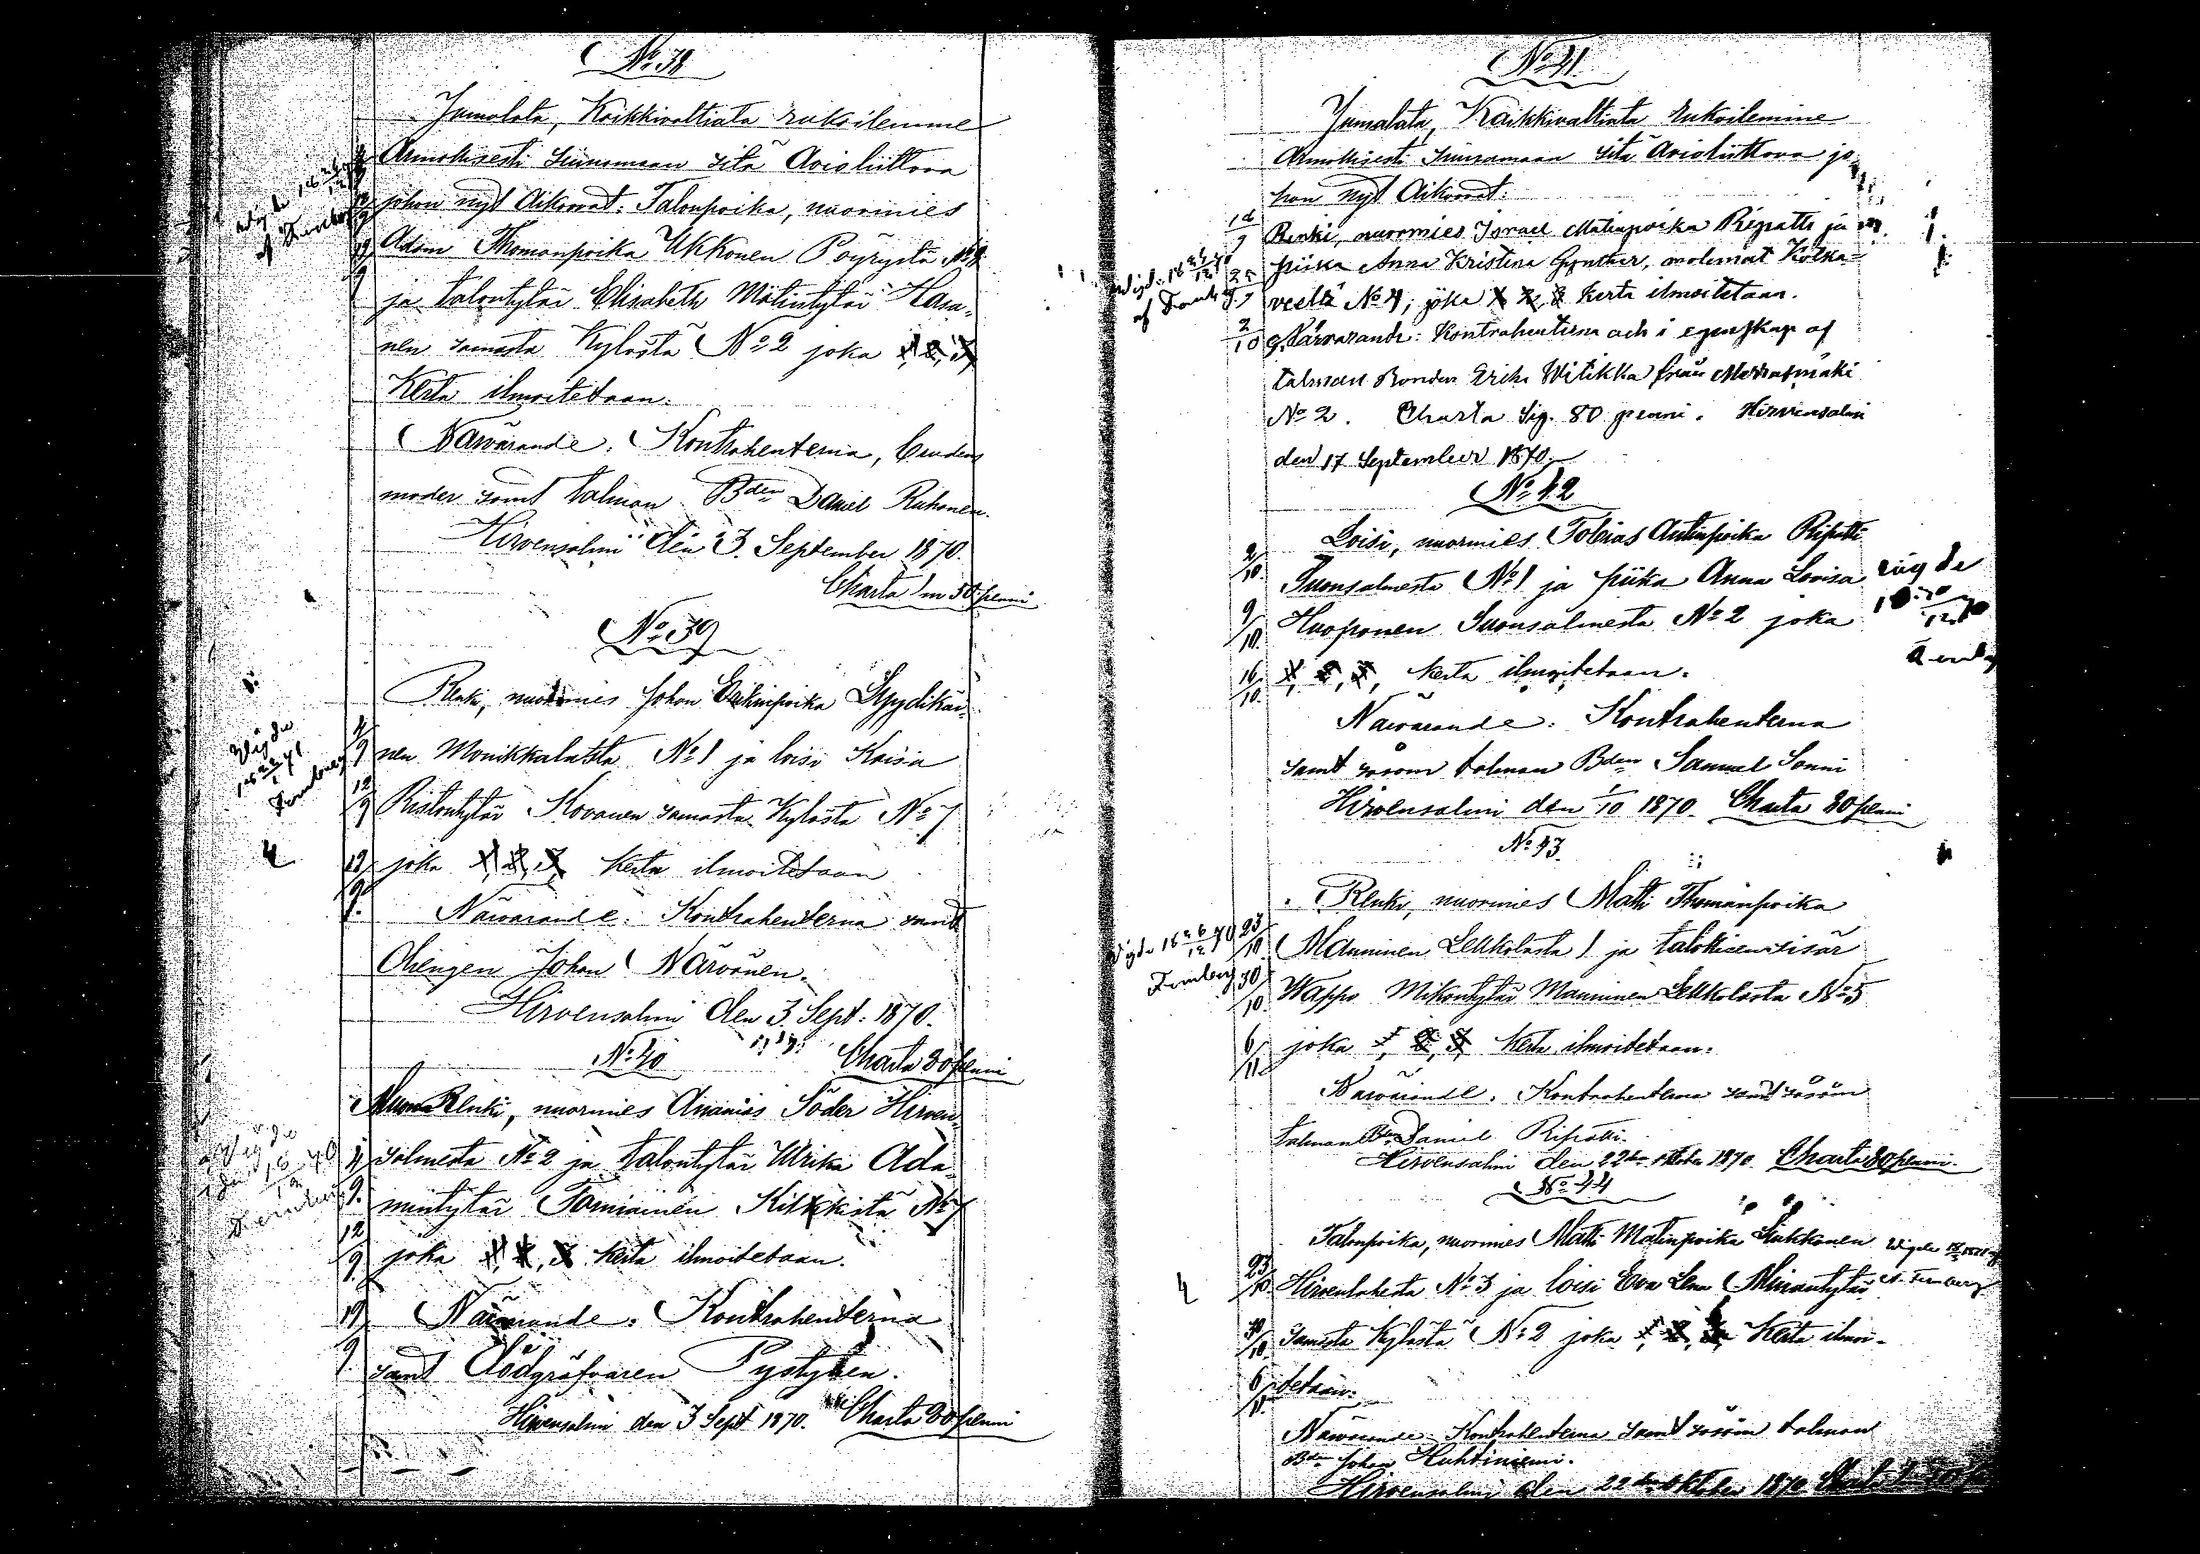 No 38
Jumalata, Kaikkivaltiata rukoilemme
Armollisesti siunamaan sitä Avioliittoa
johon nyt Aikovat: Talonpoika, nuormies
Adam Thomanpoika Ukkonen Pöyrystä No
ja talontytär Elisabeth Matintytär Hasa-
nen samasta Kylästä No 2 joka 1, 2, 3,
Kerta ilmoitetaan.
Närvarande: Kontrahenterna, brudens
moder samt talman Bden Daniel Ruhonen.
Hirvensalmi den 3 September 1870.
Charta 1 m 50 penni
No 39
Renki, nuormies Johan Erikinpoika Lyydikäi-
nen Monikkalasta No 1 ja loisi Kaisa
Ristontytär Kovanen samasta Kylästä No 7
joka 1, 2, 3, Kerta ilmoitetaan
Närvarande: Kontrahenterna samt
drengen Johan Närvänen.
Hirvensalmi den 3 Sept: 1870.
Charta 80 penni
No 40
Renki, nuormies Ananias Söder Hirven-
salmesta No 2 ja talontytär Ulrika Ada-
mintytär Tarniainen Kitkkistä No 7
joka 1, 2, 3 kerta ilmoitetaan.
Närvarande: Kontrahenterna
samt Dödgräfvaren Pystynen.
Hirvensalmi den 3 Sept 1870. Charta 80 penni
No 41.
Jumalata, Kaikkivaltiata rukoilemme
Armollisesti siunamaan sitä Avioliittova jo-
hon nyt Aikovat:
Renki, nuormies Israel Matinpoika Ripatti ja
piika Anna Kristina Gynther, molemat Kotka-
veeltä No 4, joka 1, 2, 3 kerta ilmoitetaan.
Närvarande: Kontrahenterna och i egenskap af
talman Bonden Erik Witikka från Merrasmäki
No 2. Charta Sig. 80 penni. Hirvensalmi
den 17 September 1870.
No 42
Loisi, nuormies Tobias Antinpoika Ripatti
Suonsalmesta No 1 ja piika Anna Lovisa
Huoponen Suonsalmesta No 2 joka
1, 2, 3, kerta ilmoitetaan.
Närvarande: Kontrahenterna
samt såsom talman Bden Samuel Sonni
Hirvensalmi den 1/10 1870. Charta 80 penni
No 43.
Renki, nuormies Matti Thomanpoika
Manninen Lelkolasta 1 ja talollisen sisär
Wappu Mikontytär Manninen Lelkolasta No 5
joka 1, 2, 3, kerta ilmoitetaan:
Närvarande: Kontrahenterna samt såsom
talman Bden Daniel Ripatti.
Hirvensalmi den 22dra oktober 1870. Charta 80 penni.
No 44
Talonpoika, nuormies Matti Matinpoika Liukkonen
Hirvenlahesta No 3 ja loisi Eva Lena
Samasta Kylästä No 2 joka 1, 2, 3, Kerta ilmoi-
tetaan:
Närvarande: Kontrahenterna samt såsom talman
Bden Johan Huhtiniemi.
Hirvensalmi den 22dra oktober 1870